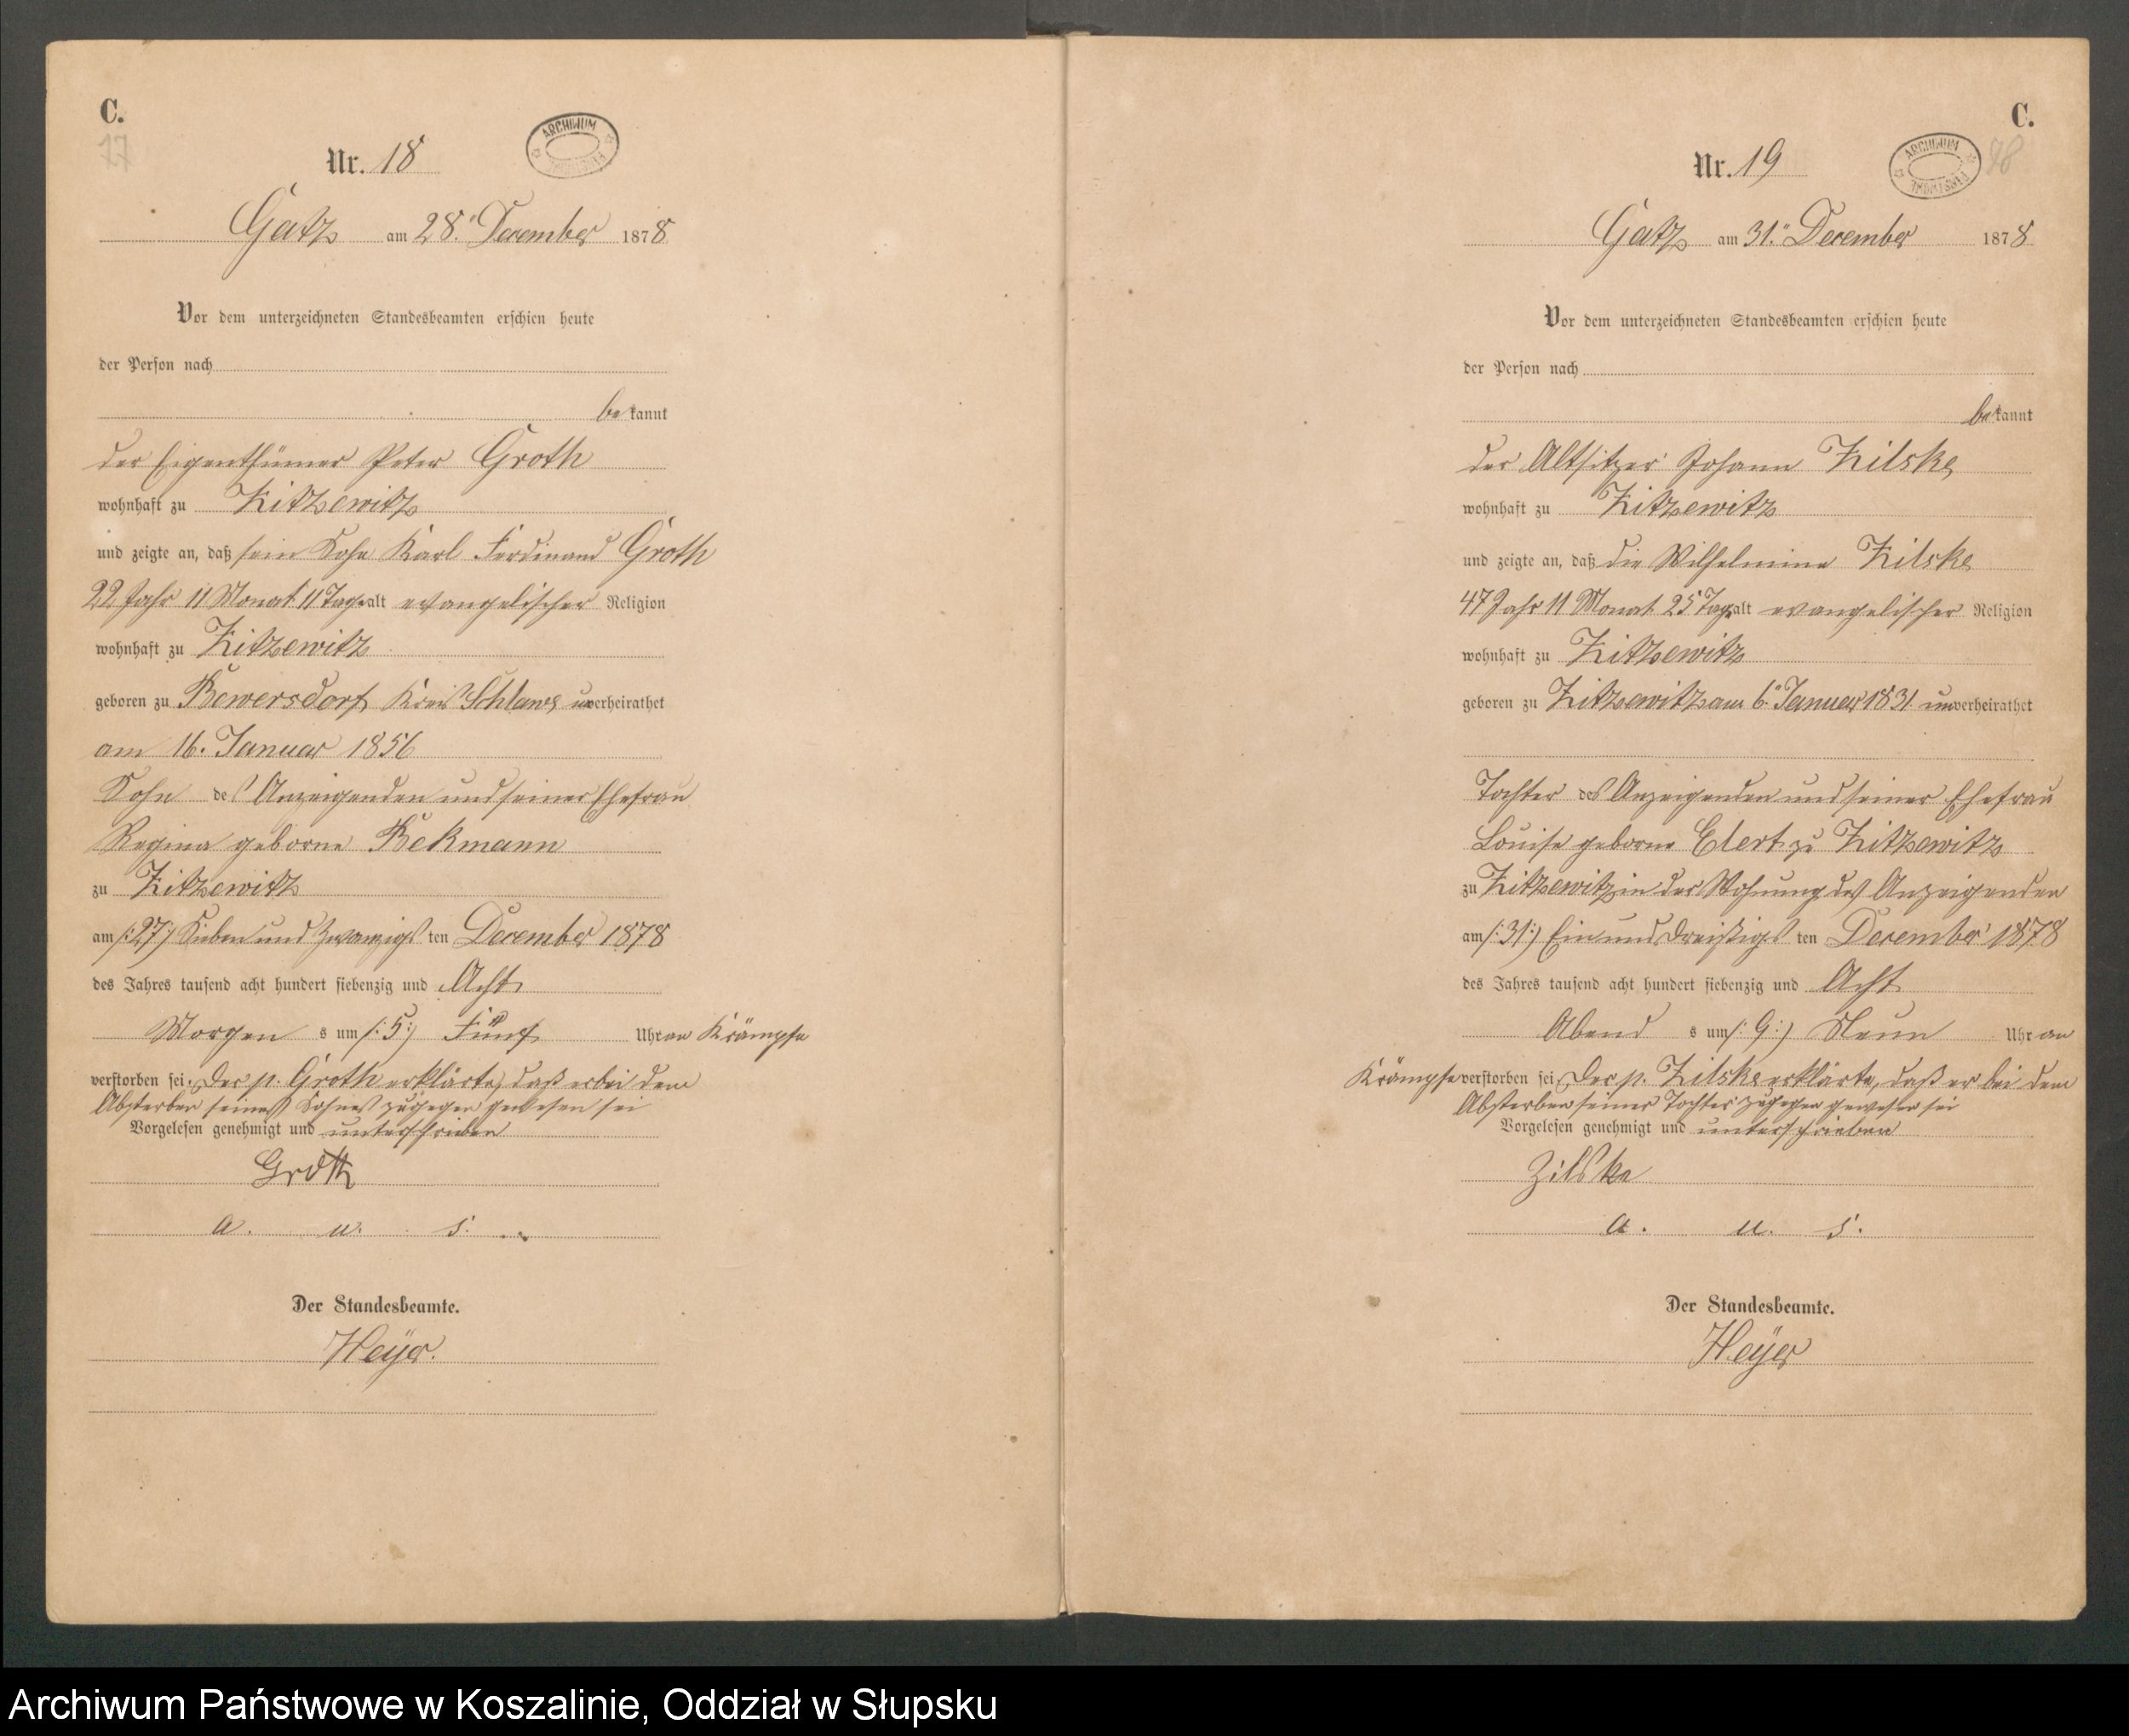 C.
17
ARCHIWUM
Nr. 18
Gatz am 28. December 1878
Vor dem unterzeichneten Standesbeamten erschien heute
der Person nach
bekannt
der Eigenthümer Peter Groth
wohnhaft zu Zitzewitz
und zeigte an, daß sein Sohn Karl Ferdinand Groth
22 Jahr 11 Monat 11 Tage alt evangelischer Religion
wohnhaft zu Zitzewitz
geboren zu Bewersdorf Kreis Schlawe unverheirathet
am 16. Januar 1856
Sohn des Anzeigenden und seiner Ehefrau
Regina geborne Bekmann
zu Zitzewitz
am /:27:/ Sieben und zwanzigsten December 1878
des Jahres tausend acht hundert siebenzig und Acht
Morgens um /:5:/ Fünf Uhr an Krämpfe
verstorben sei. Der p. Groth erklärte, daß er bei dem
Absterben seines Sohnes zugegen gewesen sei
Vorgelesen genehmigt und unterschrieben
Groth
a. u. s.
Der Standesbeamte.
Heyer.
C.
98
ARCHIWUM
Nr. 19
Gatz am 31. December 1878
Vor dem unterzeichneten Standesbeamten erschien heute
der Person nach
bekannt
der Altsitzer Johann Zilske
wohnhaft zu Zitzewitz
und zeigte an, daß die Wilhelmine Zilske
47 Jahr 11 Monat 25 Tage alt evangelischer Religion
wohnhaft zu Zitzewitz
geboren zu Zitzewitz am 6. Januar 1831 unverheirathet
Tochter des Anzeigenden und seiner Ehefrau
Louise geborne Elert zu Zitzewitz
zu Zitzewitz in der Wohnung des Anzeigenden
am /:31:/ Ein und dreißigsten December 1878
des Jahres tausend acht hundert siebenzig und Acht
Abends um /:9:/ Neun Uhr an
Krämpfe verstorben sei. Der p. Zilske erklärte, daß er bei dem
Absterben seiner Tochter zugegen gewesen sei
Vorgelesen genehmigt und unterschrieben
Zilske
a. u. s.
Der Standesbeamte.
Heyer
Archiwum Państwowe w Koszalinie, Oddział w Słupsku